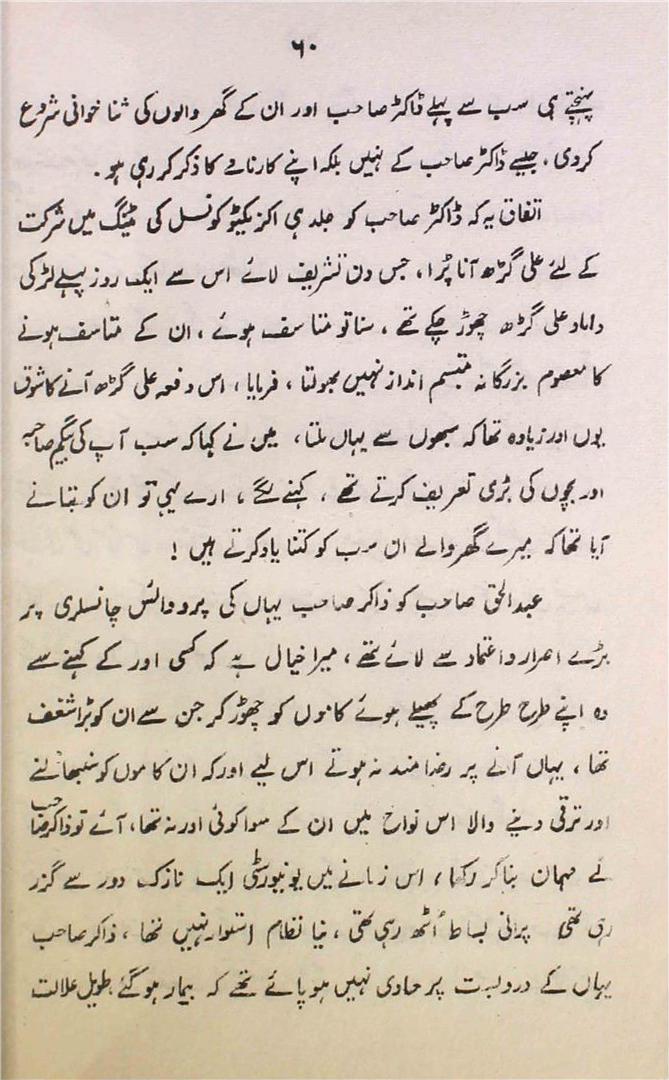 ۶۰
پہنچتے ہی سب سے پہلے ڈاکٹر صاحب اور ان کے گھر والوں کی ثنا خوانی شروع
کردی، جیسے ڈاکٹر صاحب کے نہیں بلکہ اپنے کارنامے کا ذکر کر رہی ہو۔
اتفاق یہ کہ ڈاکٹر صاحب کو جلد ہی اکزیکیٹو کونسل کی میٹنگ میں شرکت
کے لئے علی گڑھ آنا پڑا، جس دن تشریف لائے اس سے ایک روز پہلے لڑکی
داماد علی گڑھ چھوڑ چکے تھے، سنا تو متاسف ہوئے، ان کے متاسف ہونے
کا معصوم بزرگانہ متبسم انداز نہیں بھولتا، فرمایا، اس دفعہ علی گڑھ آنے کا شوق
یوں اور زیادہ تھا کہ سبھوں سے یہاں ملتا، میں نے کہا کہ سب آپ کی بیگم صاحبہ
اور بچوں کی بڑی تعریف کرتے تھے، کہنے لگے، ارے یہی تو ان کو بتانے
آیا تھا کہ میرے گھر والے ان سب کو کتنا یاد کرتے ہیں!
عبدالحق صاحب کو ذاکر صاحب یہاں کی پرو وائس چانسلری پر
بڑے اصرار و اعتماد سے لائے تھے، میرا خیال ہے کہ کسی اور کے کہنے سے
وہ اپنے طرح طرح کے پھیلے ہوئے کاموں کو چھوڑ کر جن سے ان کو بڑا شغف
تھا، یہاں آنے پر رضامند نہ ہوتے اس لیے اور کہ ان کاموں کو سنبھالنے
اور ترقی دینے والا اس نواح میں ان کے سوا کوئی اور نہ تھا، آئے تو ذاکر صاحب
نے مہمان بنا کر رکھا، اس زمانے میں یونیورسٹی ایک نازک دور سے گزر
رہی تھی پرانی بساط اُٹھ رہی تھی، نیا نظام استوار نہیں تھا، ذاکر صاحب
یہاں کے دروبست پر حاوی نہیں ہو پائے تھے کہ بیمار ہو گئے، طویل علالت